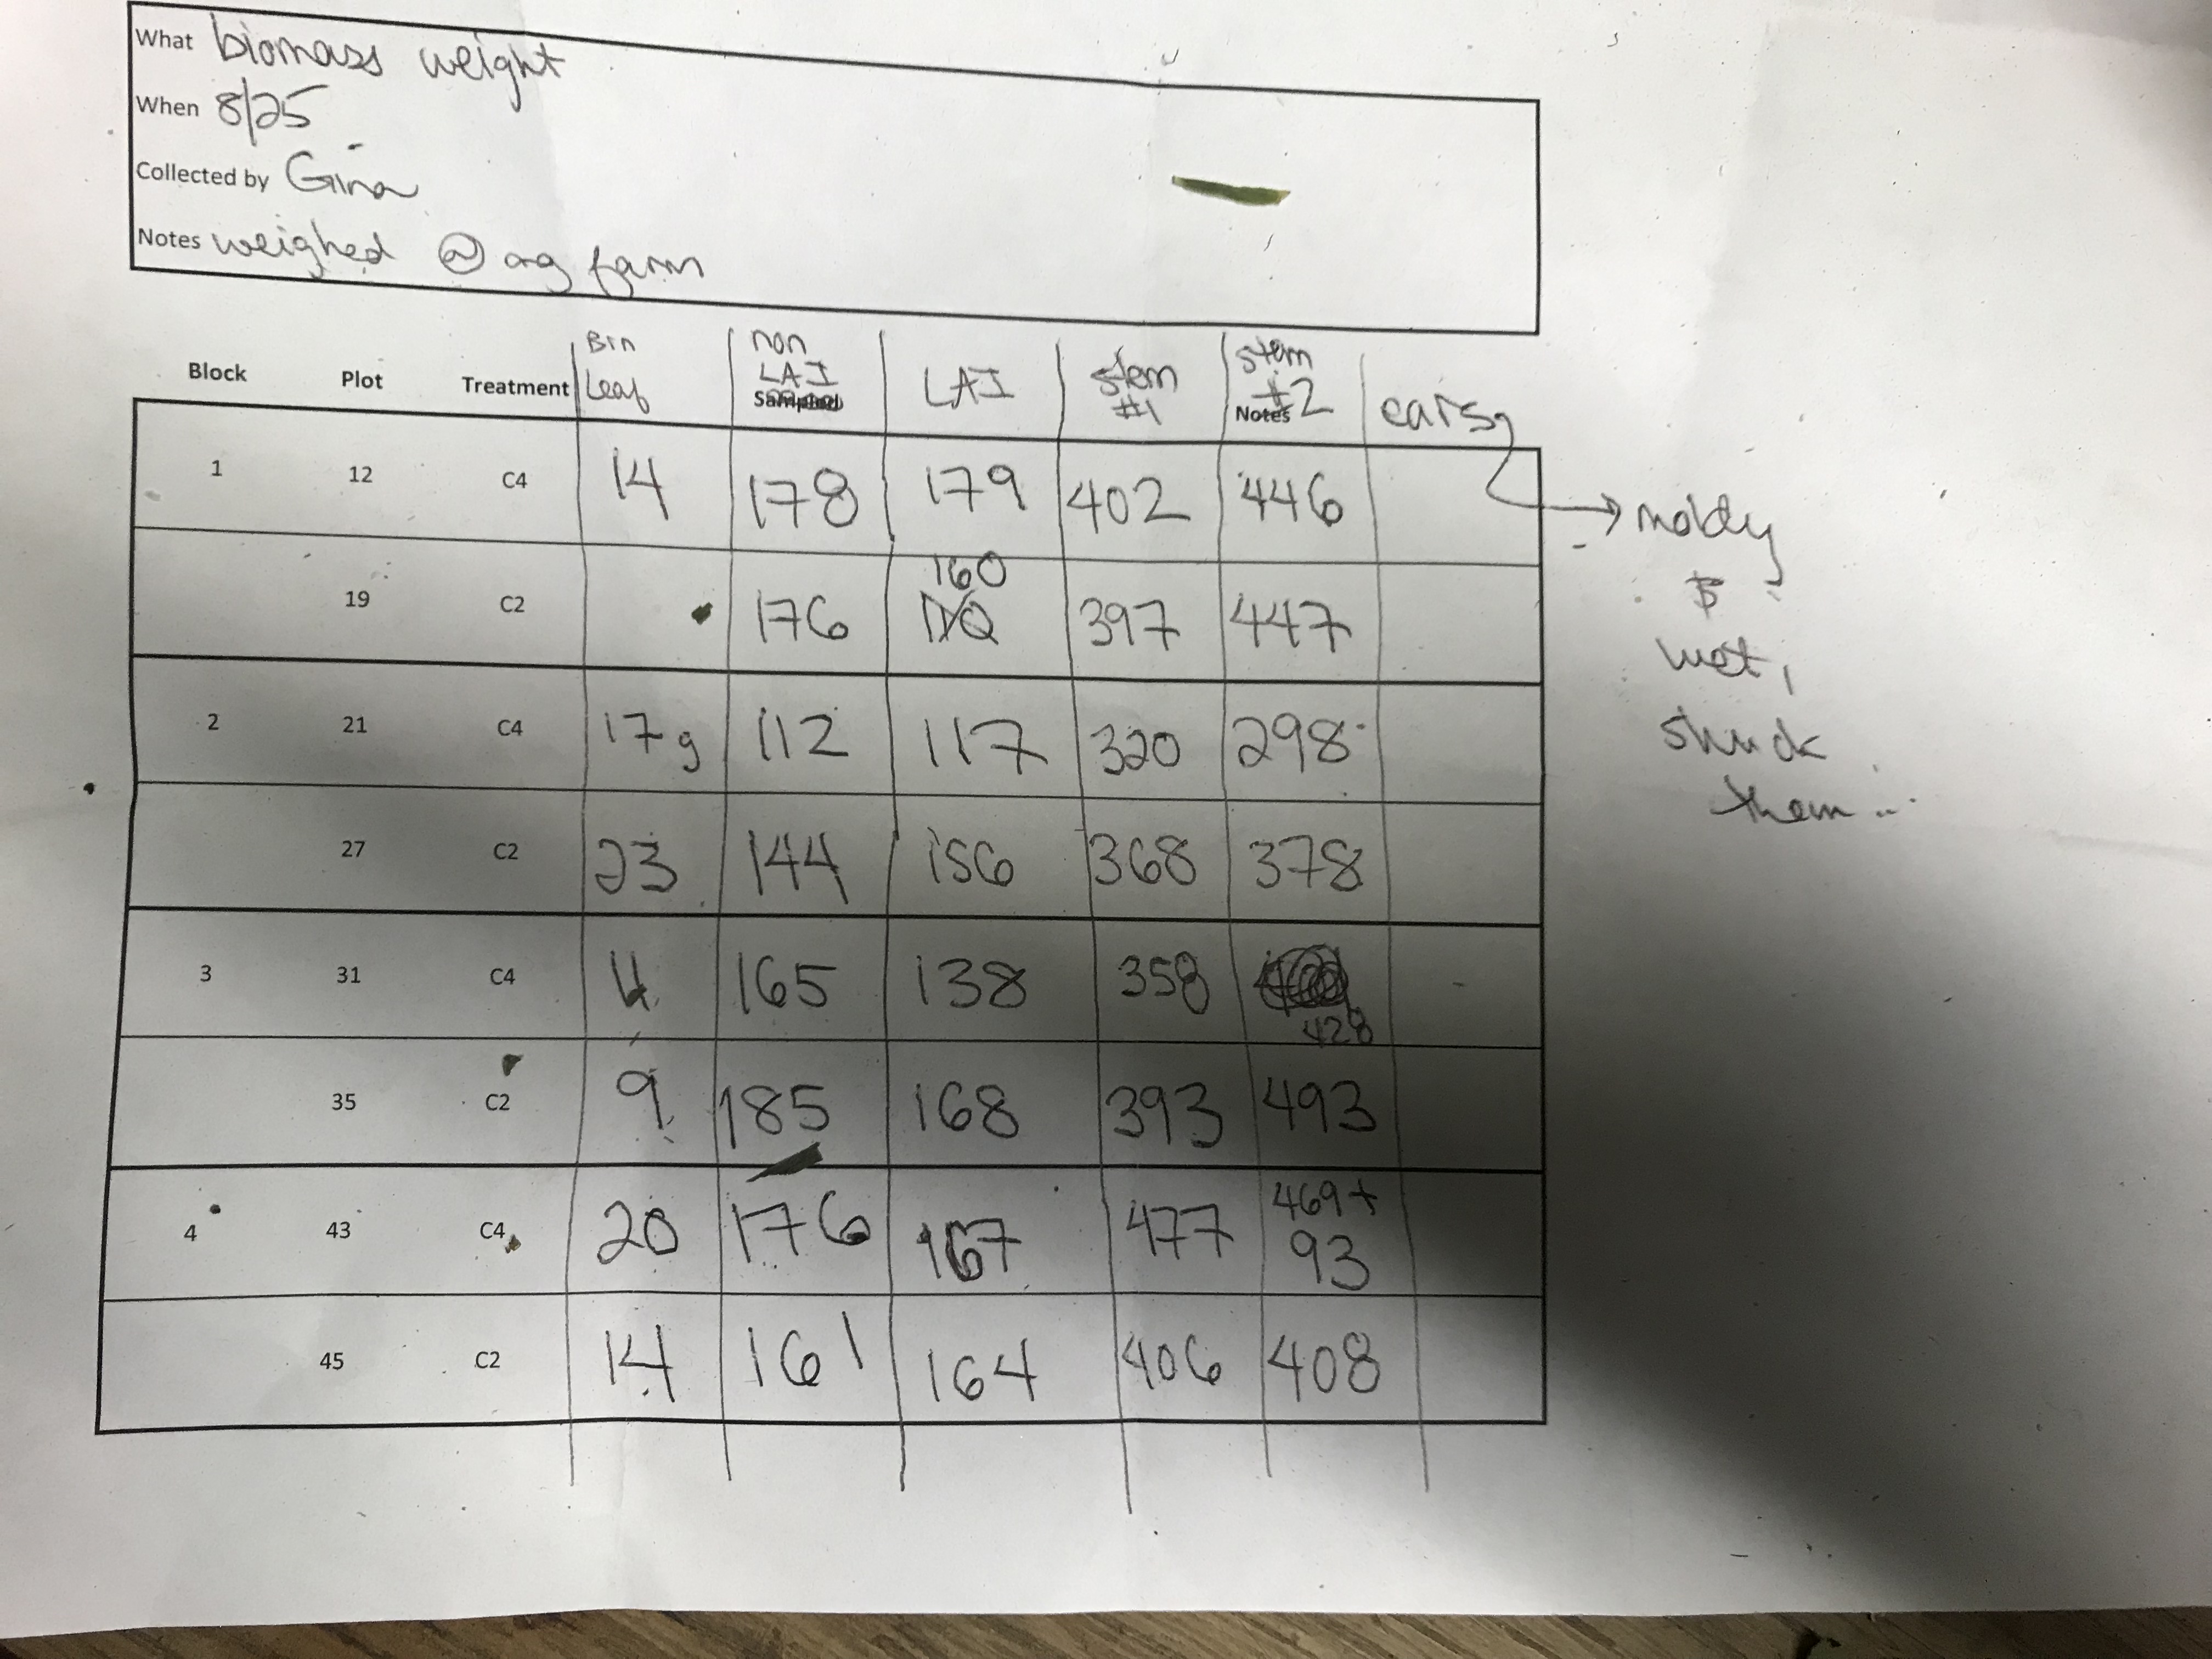 What biomass weight
When 8/25
Collected by Gina
Notes weighed @ ag farm
Block Plot Treatment Bin Leaf non LAI Sampled LAI stem #1 stem #2 Notes ears
1 12 C4 14 178 179 402 446
19 C2 176 160 397 447
2 21 C4 17g 112 117 320 298
27 C2 23 144 156 368 378
3 31 C4 165 138 358 428
35 C2 9 185 168 393 493
4 43 C4 20 176 167 477 469+93
45 C2 14 161 164 406 408
moldy
&
wet,
shuck
them...